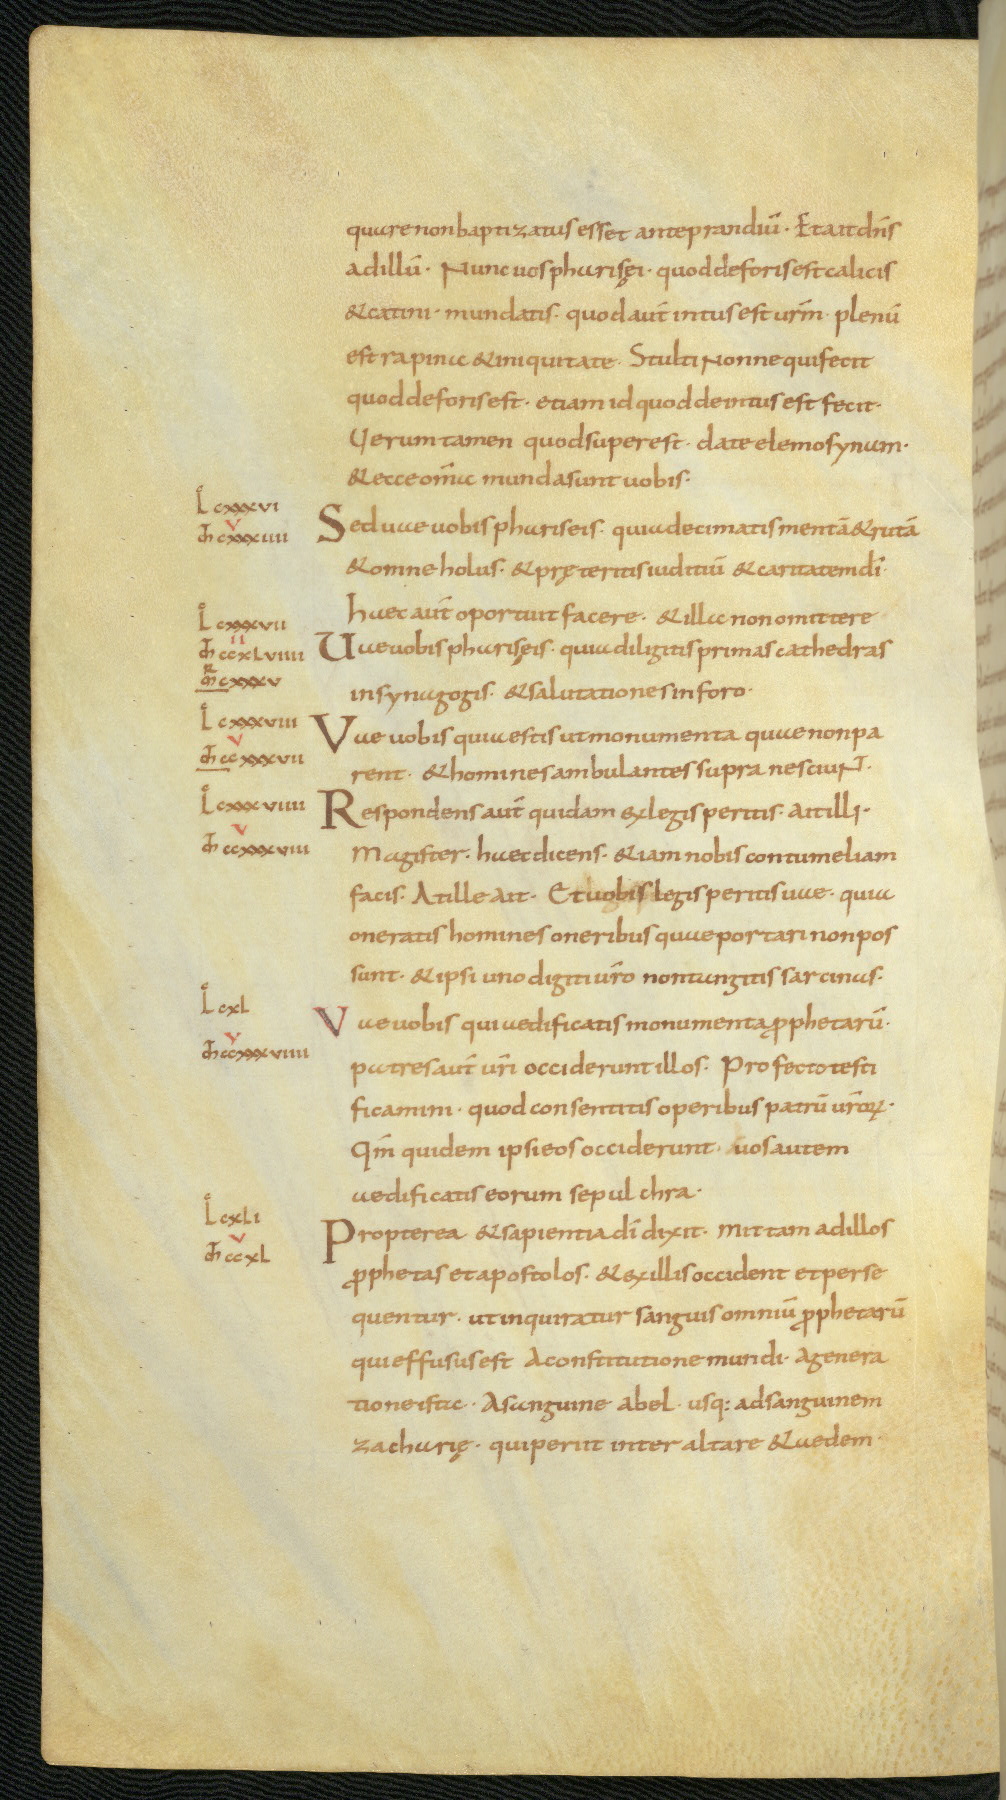 quare non baptizatus esset ante prandiū · Et ait dn̄s
ad illū · Nunc uos pharisęi · quod deforis est calicis
& catini · mundatis · quod aut̄ intus est ur̄m · plenū
est rapina & iniquitate · Stulti Nonne qui fecit
quod deforis est · etiam id quod deintus est fecit ·
Uerum tamen quod superest · date elemosynam ·
& ecce om̄ia munda sunt uobis ·
L cxxxvi
Sed uae uobis phariseis · quia decimatis mentā & rutā
m̄ cxxxiiii
v
& omne holus · & pręteritis iuditiū & caritatem dī ·
haec aut̄ oportuit facere · & illa non omittere
L cxxxvii
Uae uobis pharisęis · quia diligitis primas cathedras
m̄ ccxLviiii
ii
in synagogis · & salutationes in foro ·
m̄ cxxxv
R
L cxxxviii
Vae uobis quia estis ut monumenta quae non pa
m̄ ccxxxvii
v
rent · & homines ambulantes supra nesciuNT ·
L cxxxviiii
Respondens aut̄ quidam ex legis peritis · ait illi ·
m̄ ccxxxviii
v
Magister · haec dicens · & iam nobis contumeliam
facis · At ille ait · Et uobis legis peritis uae · quia
oneratis homines oneribus quae portari non pos
sunt · & ipsi uno digiti ur̄o non tangitis sarcinas ·
L cxL
Vae uobis qui aedificatis monumenta ꝓphetarū ·
m̄ ccxxxviiii
v
patres aut̄ ur̄i occiderunt illos · Profecto testi
ficamini · quod consentitis operibus patrū ur̄oꝝ ·
Qm̄ quidem ipsi eos occiderunt · uos autem
aedificatis eorum sepulchra ·
L cxLi
Propterea & sapientia dī dixit · mittam ad illos
m̄ ccxL
v
ꝓphetas et apostolos · & ex illis occident et perse
quentur · ut inquiratur sanguis omniū ꝓphetarū
qui effusus est A constitutione mundi · A genera
tione ista · A sanguine abel · usq: ad sanguinem
zacharię · qui periit inter altare & aedem ·